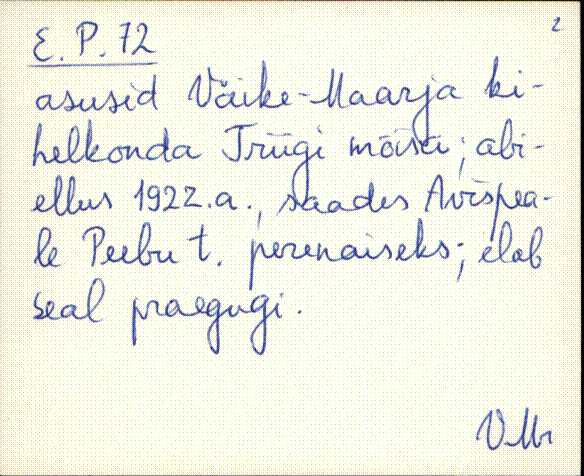 2
E. P. 72
asusid Väike-Maarja ki-
helkonda Triigi mõisa; abi-
ellus 1922.a., saades Avispea-
le Peebu t. perenaiseks; elab
seal praegugi.
VMr